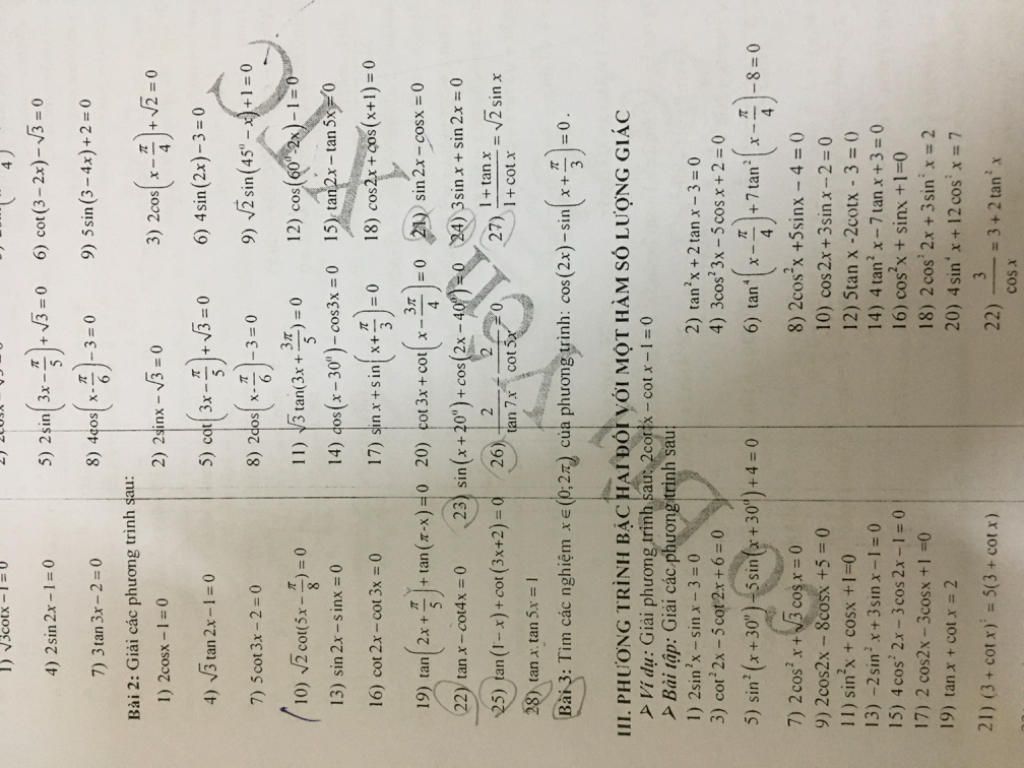 1) √3cotx−1=0
4) 2sin2x−1=0 5) 2sin(3x−π/5)+√3=0 6) cot(3−2x)−√3=0
7) 3tan3x−2=0 8) 4cos(x-π/6)−3=0 9) 5sin(3−4x)+2=0
Bài 2: Giải các phương trình sau:
1) 2cosx−1=0 2) 2sinx−√3=0 3) 2cos(x−π/4)+√2=0
4) √3tan2x−1=0 5) cot(3x−π/5)+√3=0 6) 4sin(2x)−3=0
7) 5cot3x−2=0 8) 2cos(x-π/6)−3=0 9) √2sin(45⁰−x)+1=0
10) √2cot(5x−π/8)=0 11) √3tan(3x+3π/5)=0 12) cos(60⁰-2x)−1=0
13) sin2x−sinx=0 14) cos(x−30⁰)−cos3x=0 15) tan2x−tan5x=0
16) cot2x−cot3x=0 17) sinx+sin(x+π/3)=0 18) cos2x+cos(x+1)=0
19) tan(2x+π/5)+tan(π-x)=0 20) cot3x+cot(x−3π/4)=0 21) sin2x−cosx=0
22) tanx−cot4x=0 23) sin(x+20⁰)+cos(2x−40⁰)=0 24) 3sinx+sin2x=0
25) tan(1−x)+cot(3x+2)=0 26) 2/tan7x − 2/cot5x=0 27) (1+tanx)/(1+cotx)=√2sinx
28) tanx.tan5x=1
Bài 3: Tìm các nghiệm x∈(0;2π) của phương trình: cos(2x)−sin(x+π/3)=0.
III. PHƯƠNG TRÌNH BẬC HAI ĐỐI VỚI MỘT HÀM SỐ LƯỢNG GIÁC
➢ Ví dụ: Giải phương trình sau: 2cot²x−cotx−1=0
➢ Bài tập: Giải các phương trình sau:
1) 2sin²x−sinx−3=0 2) tan²x+2tanx−3=0
3) cot²2x−5cot2x+6=0 4) 3cos²3x−5cosx+2=0
5) sin²(x+30⁰)−5sin(x+30⁰)+4=0 6) tan⁴(x−π/4)+7tan²(x−π/4)−8=0
7) 2cos²x+√3cosx=0 8) 2cos²x+5sinx−4=0
9) 2cos2x−8cosx+5=0 10) cos2x+3sinx−2=0
11) sin²x+cosx+1=0 12) 5tanx-2cotx-3=0
13) −2sin²x+3sinx−1=0 14) 4tan²x−7tanx+3=0
15) 4cos²2x−3cos2x−1=0 16) cos²x+sinx+1=0
17) 2cos2x−3cosx+1=0 18) 2cos²2x+3sin²x=2
19) tanx+cotx=2 20) 4sin⁴x+12cos²x=7
21) (3+cotx)²=5(3+cotx) 22) 3/cosx=3+2tan²x